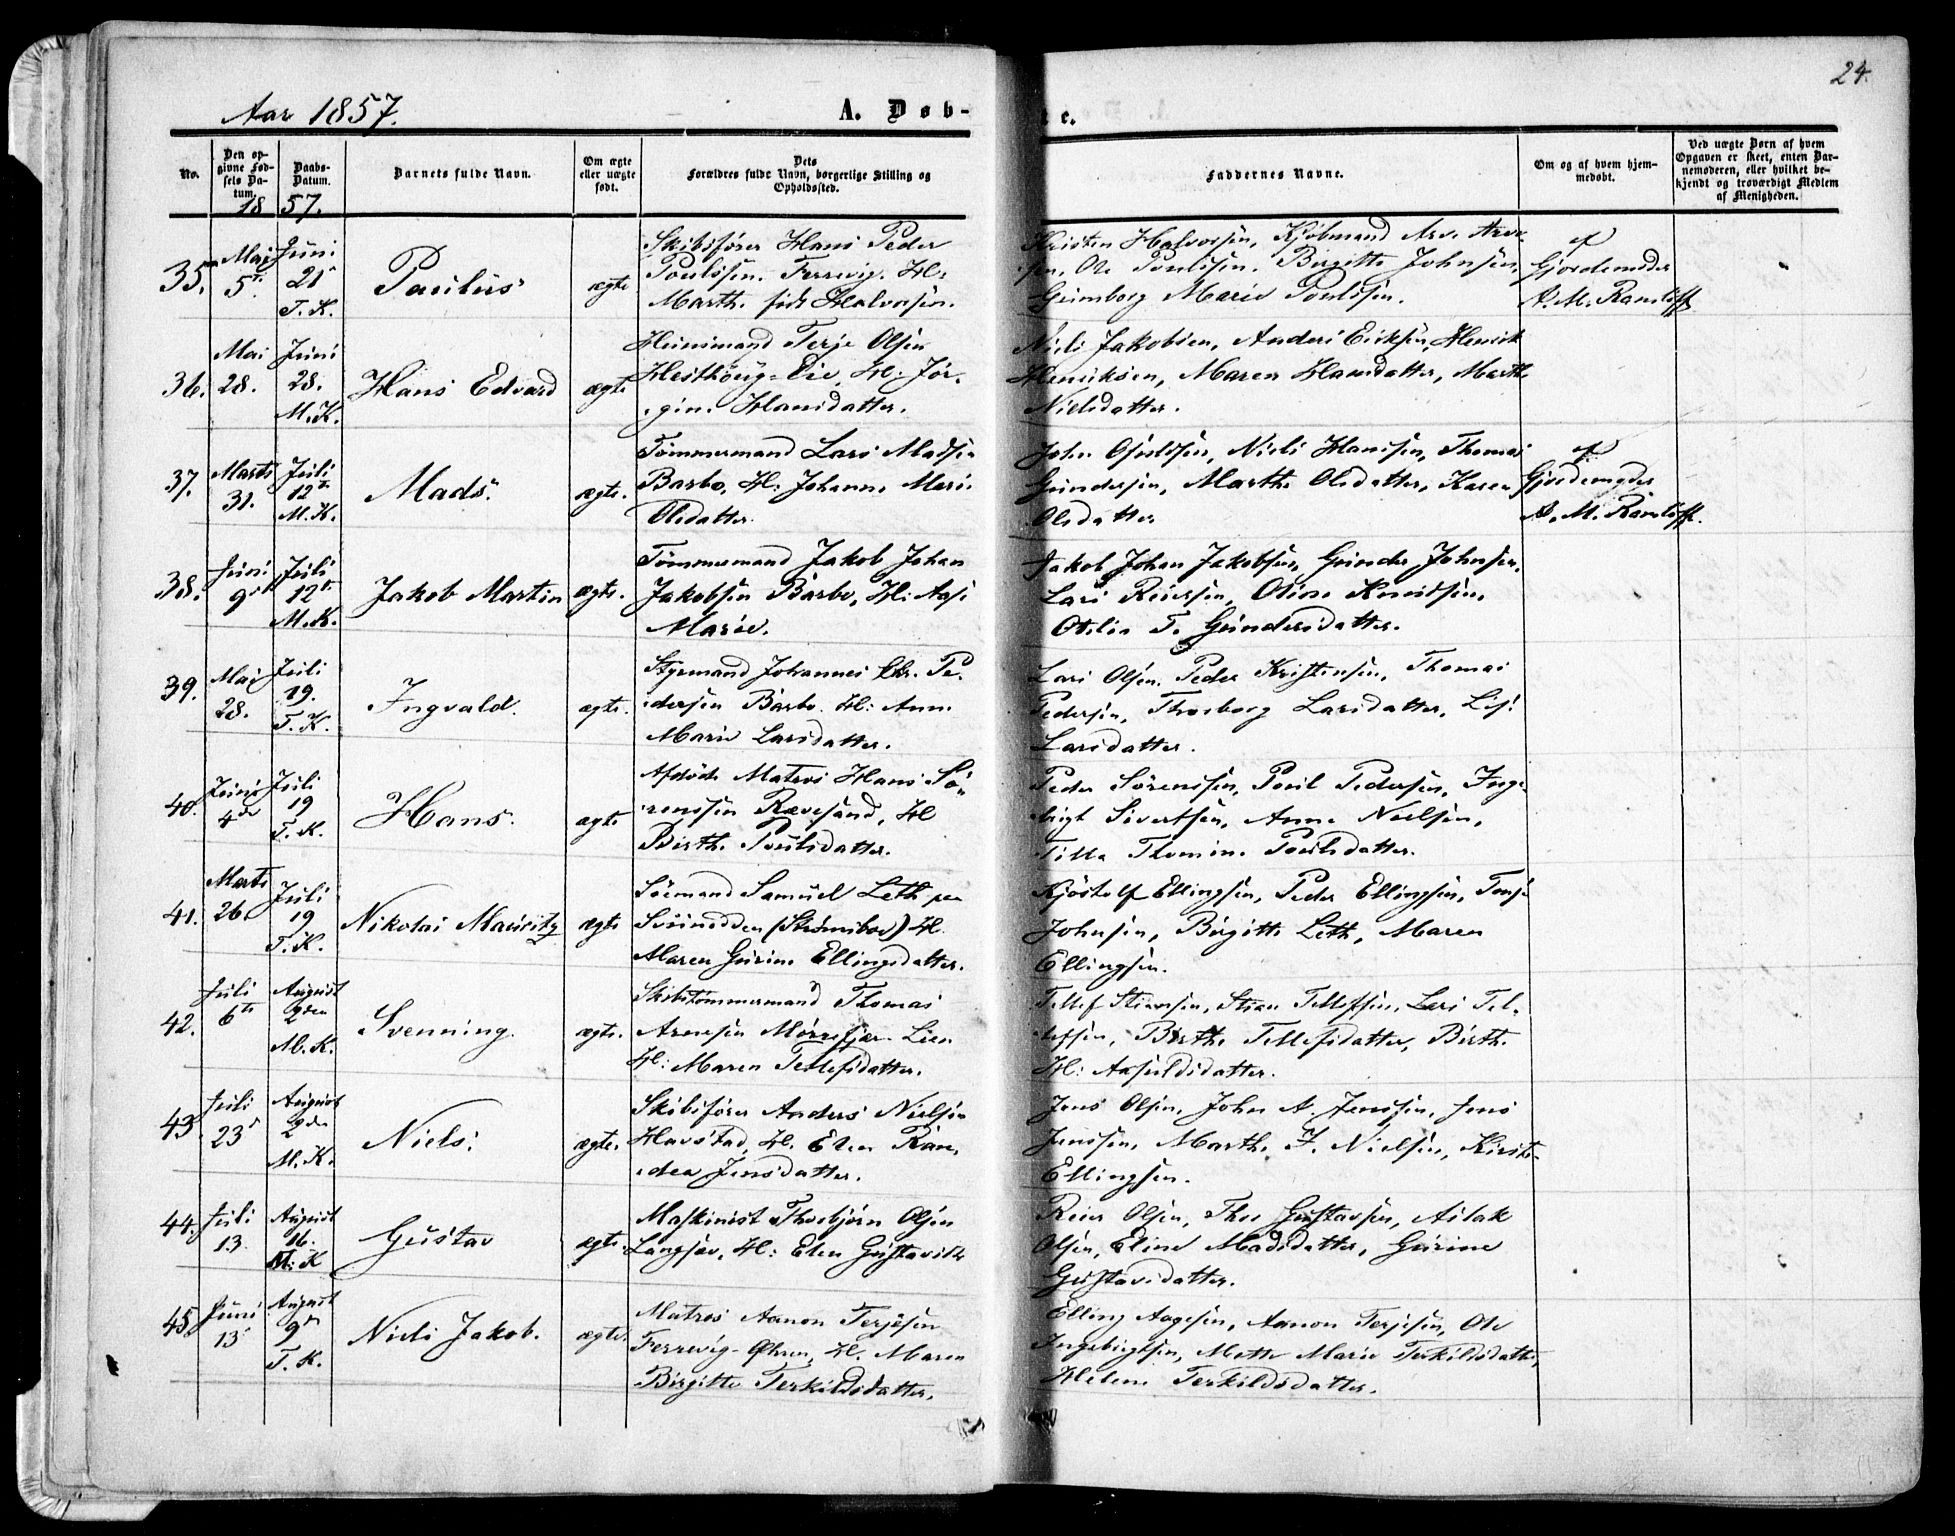 24.
Aar 1857.
A. Døb-
e.
No.
Den op-
givne Fød-
sels Da-
tum.
Daabs-
Datum.
Barnets fulde Navn.
Om ægte
eller uægte
født.
Dets
Forældres fulde Navn, borgerlige Stilling og
Opholdssted.
Faddernes Navne.
Om og af hvem hjem-
medøbt.
Ved uægte Børn af hvem
Opgaven er skeet, enten Bar-
nemoderen, eller hvilket be-
kjendt og troværdigt Medlem
af Menigheden.
18 57.
35.
Mai
5te
Juni
21
T. K.
Paulus
ægte
Skibsfører Hans Peder
Poulssen. Ferrevig. H:
Marth. Halvorsen.
Kristen Halvorsen, Kjøbmand
Ole Poulssen. Birgitte Johnsen,
Gunborg Marie Poulssen.
af
Gjordemoder
A. M. Ramløff
36.
Mai
28.
Juni
28.
M. K.
Hans Edvard
ægte
Huusmand Terje Olsen
Hesthoug-Eie, H: Jør-
gine Hansdatter.
Niels Jakobsen, Anders Eriksen, Henrik
Henriksen, Maren Hansdatter, Marthe
Nielsdatter.
37.
Marts
31.
Juli
12te
M. K.
Mads.
ægte.
Tømmermand Lars Madsen
Barbo, H: Johanne Marie
Olsdatter.
John Osuldsen, Niels Hanssen, Thomas
Gundersen, Marthe Olsdatter, Karen
Olsdatter
af
Gjordemoder
A. M. Ramløff.
38.
Juni
9de
Juli
12te
M. K.
Jakob Martin
ægte.
Tømmermand Jakob Johan
Jakobsen Barbo, H: Aase
Marie.
Jakob Johan Jakobsen, Gunder Johnsen,
Lars Reiersen, Oline Knudsen,
Otilie T. Gundersdatter.
39.
Mai
28.
Juli
19.
T. K.
Ingvald.
ægte.
Styrmand Johannes Chr. Pe-
dersen Barbo. H: Anne
Marie Larsdatter.
Lars Olsen. Peder Kristensen, Thomas
Pedersen, Thorborg Larsdatter, Lise
Larsdatter.
40.
Juni
4de
Juli
19
T. K.
Hans.
ægte
Afdøde Matros Hans Sø-
renssen Rævesand, H
Birthe Poulsdatter.
Peder Sørenssen, Poul Pedersen, Inge-
brigt Sivertsen, Anne Nielsen,
Tilla Thomine Poulsdatter.
41.
Marts
26.
Juli
19
T. K.
Nikolai Mauritz
ægte
Sømand Samuel Leth paa
(Strømsboe) H.
Maren Gurine Ellingsdatter.
Kjøstolf Ellingsen, Peder Ellingsen, Tonje
Johnsen, Birgitte Leth, Maren
Ellingsen.
42.
Juli
6te
August
2den
M. K.
Svenning.
ægte.
Skibstømmermand Thomas
Arnesen Mørrefjær-Lien
H: Maren Tellefsdatter.
Tellef Stiansen, Stian Tellefsen, Lars Tel-
lefsen, Birthe Tellefsdatter, Birthe
H: Aasuldsdatter.
43
Juli
23
August
2den
M. K.
Niels.
ægte.
Skibsfører Anders Nielsen
Havstad, H. Elen
Jensdatter.
Jens Olsen, John A. Jenssen, Jens
Jenssen, Marthe J. Nielsen, Kirste
Ellingsen.
44.
Juli
13.
August
16.
M. K
Gustav
ægte.
Maskinist Thorbjørn Olsen
Langsæv, H: Elen Gustavsdtr
Reier Olsen, Thor Gustavsen, Aslak
Olsen, Eline Madsdatter, Gurine
Gustavsdatter.
45.
Juni
13
August
9de
T. K.
Niels Jakob.
ægte.
Matros Aanon Terjesen
Ferrevig-Øhren, H. Maren
Birgitte Terkildsdatter.
Elling Aagesen, Aanon Terjesen, Ole
Ingebrigtsen, Mette Marie Terkildsdatter,
Helene Terkildsdatter.